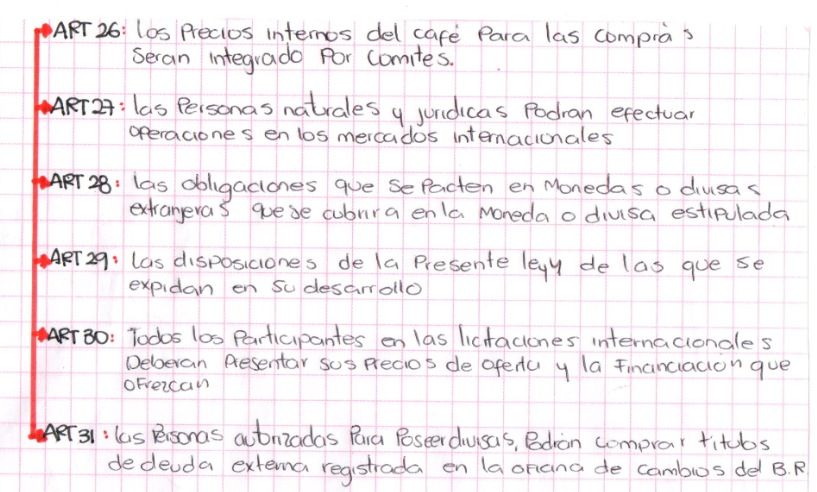 ART 26: los Precios internos del café Para las compras
Seran integrado Por comites.
ART 27: las Personas naturales y juridicas Podran efectuar
operaciones en los mercados internacionales
ART 28: las obligaciones que se Pacten en Monedas o divisas
extranjeras que se cubrira en la Moneda o divisa estipulada
ART 29: las disposiciones de la Presente ley y de las que se
expidan en su desarrollo
ART 30: Todos los Participantes en las licitaciones internacionales
Deberan Presentar sus Precios de oferta y la Financiacion que
oFrezcan
ART 31: las Personas autorizadas Para Poseer divisas, Podran comprar titulos
de deuda externa registrada en la oficina de cambios del B.R.